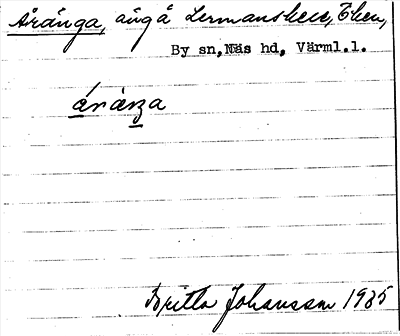 Åränga, äng å Lermansheu, Ehen,
By sn, Näs hd, Värml.l.
áràŋa
Britta Johansson 1935